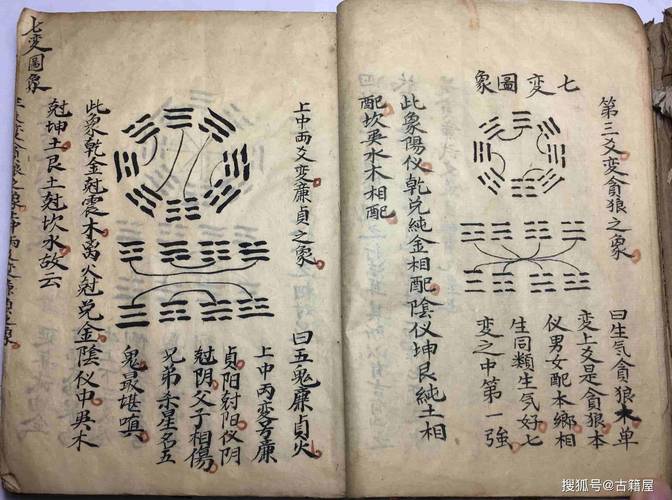 第三爻變貪狼之象
七变圖象
曰生气貪狼木单
变上爻是貪狼本
仪男女配本鄉相
生同類生气好七
变之中第一強
此象陽仪乾兑純金相配陰仪坤艮純土相
配坎巽水木相配
上中两爻变廉貞之象
曰五鬼廉貞火
上中丙变号廉
貞阳尅阳仪阴
尅阴父子相傷
兄弟杀星名五
鬼最堪嗔
此象乾金尅震木离火尅兑金陰仪中巽木
尅坤土艮土尅坎水故云
七变圖象
搜狐号@古籍屋